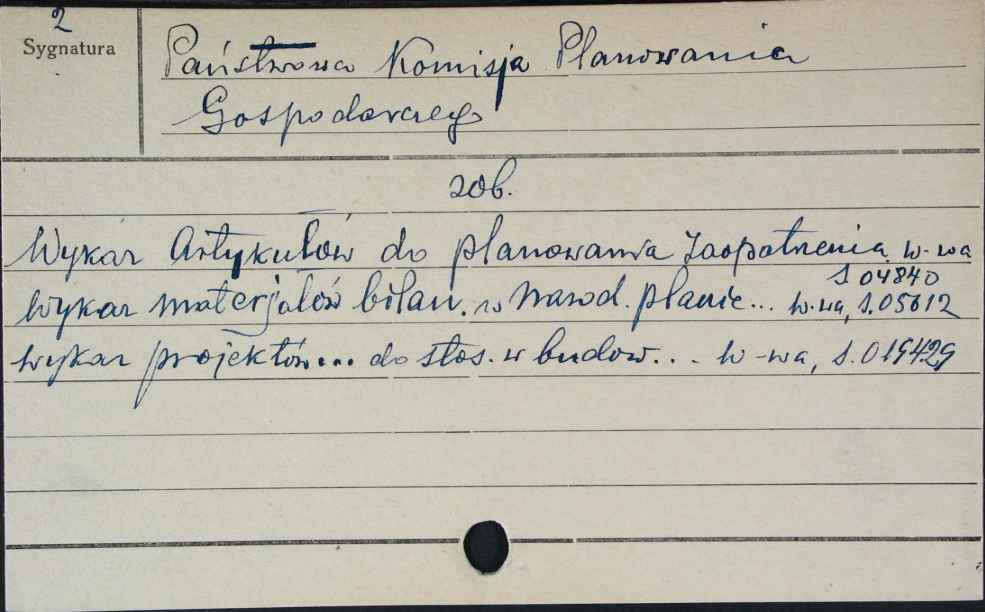 2
Sygnatura
Państwowa Komisja Planowania
Gospodarczego
zob.
Wykaz Artykułów do planowania zaopatrzenia W-wa
S 04840
Wykaz materjałów bilan. w Narod. planie... W-wa, S.05612
Wykaz projektów... do stos. w budow... W-wa, S.019429